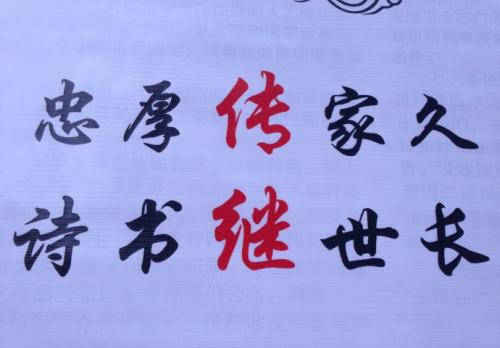 忠厚传家久
诗书继世长